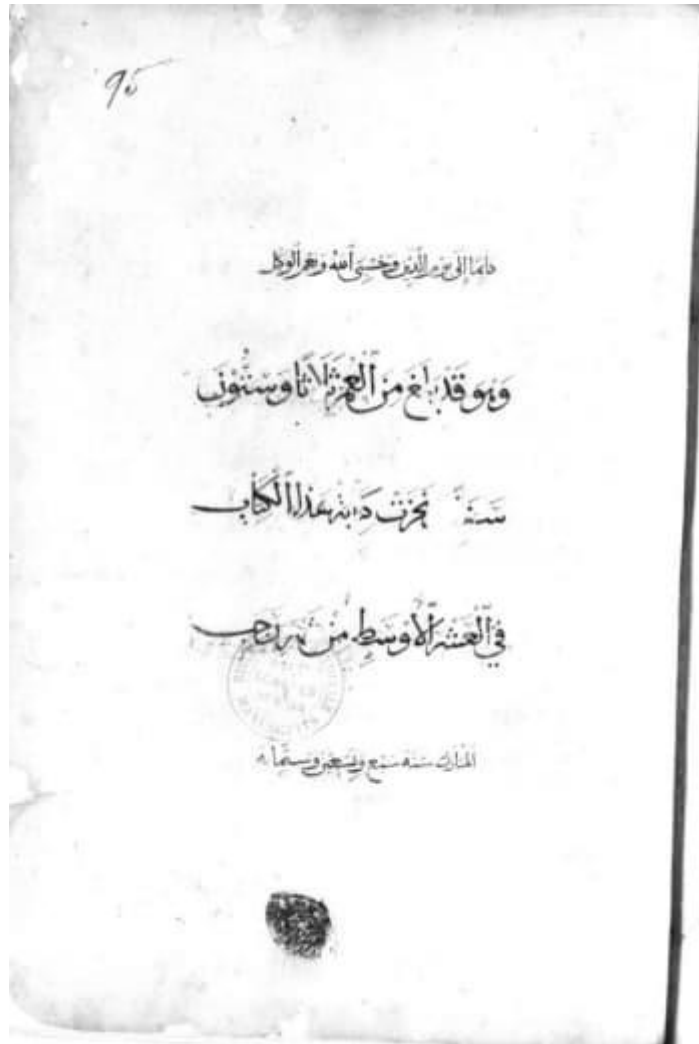 95
دائما إلى يوم الدين وحسبي الله ونعم الوكيل
وَهو قَد بلغ مِنَ العُمر ثَلَاثًا وَسِتُّونَ
سَنَة نجزت كتابة هذا الكتاب
في العشر الأوسط مِن شهر رجب
المبارك سنة سبع وتسعين وستمائة